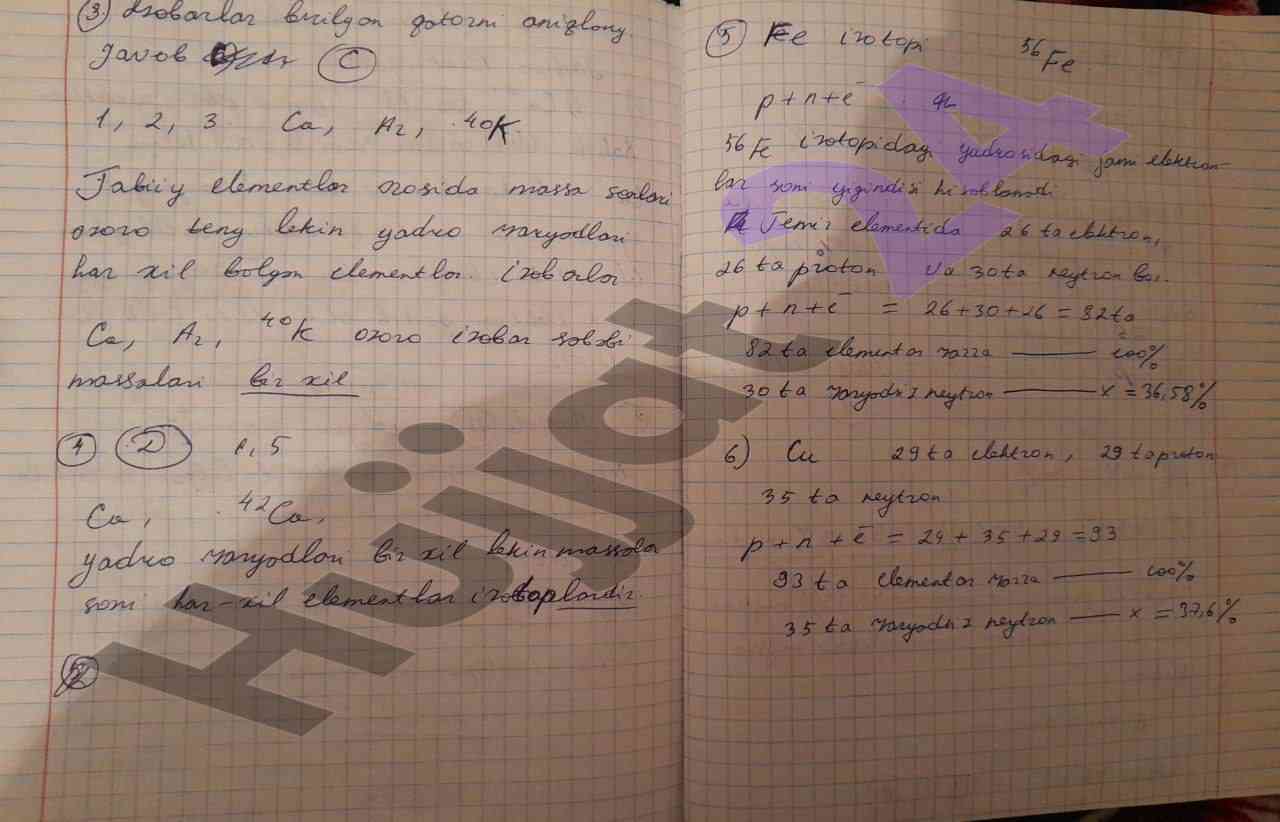 3. Izobarlar berilgan qatorni aniqlang.
Javob C
1, 2, 3 Ca, Ar, 40K
Tabiiy elementlar orasida massa sonlari
ozaro teng lekin yadro zaryadlari
har xil bolgan elementlar izobarlar
Ca, Ar, 40K ozaro izobar sababi
massalari bir xil
4 D 1, 5
Ca, 42Ca,
yadro zaryadlari bir xil lekin massalar
soni har-xil elementlar izotoplardir.
5 Fe izotopi 56Fe
p+n+e-
56Fe izotopidagi yadrosidagi jami elektron-
lar soni yigindisi hisoblanadi
Temir elementida 26 ta elektron,
26 ta proton va 30 ta neytron bor.
p+n+e- = 26+30+26 = 82 ta
82 ta elementar zarra — 100%
30 ta zaryadsiz neytron — x = 36,58%
6) Cu 29 ta elektron, 29 ta proton
35 ta neytron
p+n+e- = 29+35+29=93
93 ta elementar zarra — 100%
35 ta zaryadsiz neytron — x = 37,6%
Hujjat
24